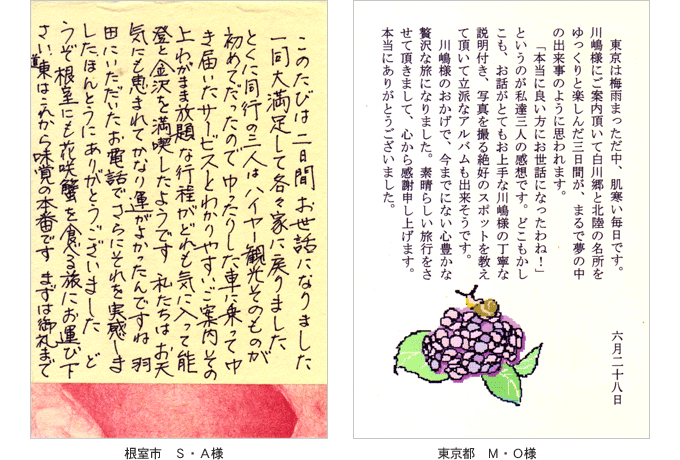 このたびは二日間お世話になりました
一同大満足して各々家に戻りました
とくに同行の三人はハイヤー観光そのものが
初めてだったのでゆったりした車に乗ってゆ
き届いたサービスとわかりやすいご案内その
上わがまま放題な行程がどれも気に入って能
登と金沢を満喫したようです 私たちはお天
気にも恵まれてかなり運がよかったんですね 羽
田にいただいたお電話でさらにそれを実感しま
したほんとうにありがとうございました ど
うぞ根室にも花咲蟹を食べる旅にお運び下
さい道東はこれから味覚の本番です まずは御礼まで
根室市 S・A様
東京は梅雨まっただ中、肌寒い毎日です。
川嶋様にご案内頂いて白川郷と北陸の名所を
ゆっくりと楽しんだ三日間が、まるで夢の中
の出来事のように思われます。
「本当に良い方にお世話になったわね！」
というのが私達三人の感想です。どこもかし
こも、お話がとてもお上手な川嶋様の丁寧な
説明付き、写真を撮る絶好のスポットを教え
て頂いて立派なアルバムも出来そうです。
川嶋様のおかげで、今までにない心豊かな
贅沢な旅になりました。素晴らしい旅行をさ
せて頂きまして、心から感謝申し上げます。
本当にありがとうございました。
六月二十八日
東京都 M・O様